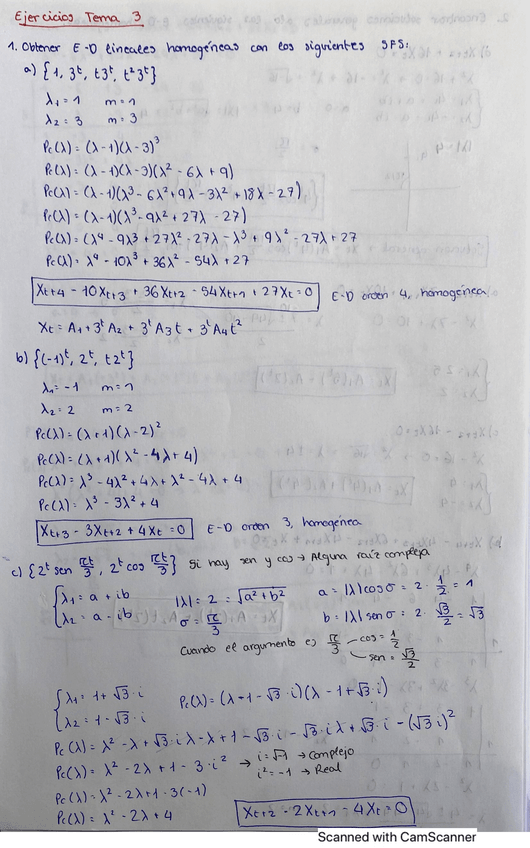 Ejercicios Tema 3
1. Obtener E-D lineales homogéneas con los siguientes SFS:
a) {1, 3ᵗ, t3ᵗ, t²3ᵗ}
λ₁ = 1 m = 1
λ₂ = 3 m = 3
Pc(λ) = (λ-1)(λ-3)³
Pc(λ) = (λ-1)(λ-3)(λ² - 6λ + 9)
Pc(λ) = (λ-1)(λ³ - 6λ² + 9λ - 3λ² + 18λ - 27)
Pc(λ) = (λ-1)(λ³ - 9λ² + 27λ - 27)
Pc(λ) = (λ⁴ - 9λ³ + 27λ² - 27λ - λ³ + 9λ² - 27λ + 27
Pc(λ) = λ⁴ - 10λ³ + 36λ² - 54λ + 27
Xt+4 - 10Xt+3 + 36Xt+2 - 54Xt+1 + 27Xt = 0 E-D orden 4, homogénea
Xt = A₁ + 3ᵗA₂ + 3ᵗA₃t + 3ᵗA₄t²
b) {(-1)ᵗ, 2ᵗ, t2ᵗ}
λ₁ = -1 m = 1
λ₂ = 2 m = 2
Pc(λ) = (λ+1)(λ-2)²
Pc(λ) = (λ+1)(λ² - 4λ + 4)
Pc(λ) = λ³ - 4λ² + 4λ + λ² - 4λ + 4
Pc(λ) = λ³ - 3λ² + 4
Xt+3 - 3Xt+2 + 4Xt = 0 E-D orden 3, homogénea
c) {2ᵗ sen πt/3, 2ᵗ cos πt/3} Si hay sen y cos → Alguna raíz compleja
{ λ₁ = a + ib |λ| = 2 = √a² + b² a = |λ| cos σ = 2 · 1/2 = 1
λ₂ = a - ib σ = π/3 b = |λ| sen σ = 2 · √3/2 = √3
Cuando el argumento es π/3 cos = 1/2
sen = √3/2
{ λ₁ = 1 + √3 · i Pc(λ) = (λ - 1 - √3 · i)(λ - 1 + √3 · i)
λ₂ = 1 - √3 · i
Pc(λ) = λ² - λ + √3 · iλ - λ + 1 - √3 · i - √3 · iλ + √3 · i - (√3 i)²
Pc(λ) = λ² - 2λ + 1 - 3 · i² → i = √-1 → Complejo
i² = -1 → Real
Pc(λ) = λ² - 2λ + 1 - 3(-1)
Pc(λ) = λ² - 2λ + 4 Xt+2 - 2Xt+1 - 4Xt = 0
Scanned with CamScanner